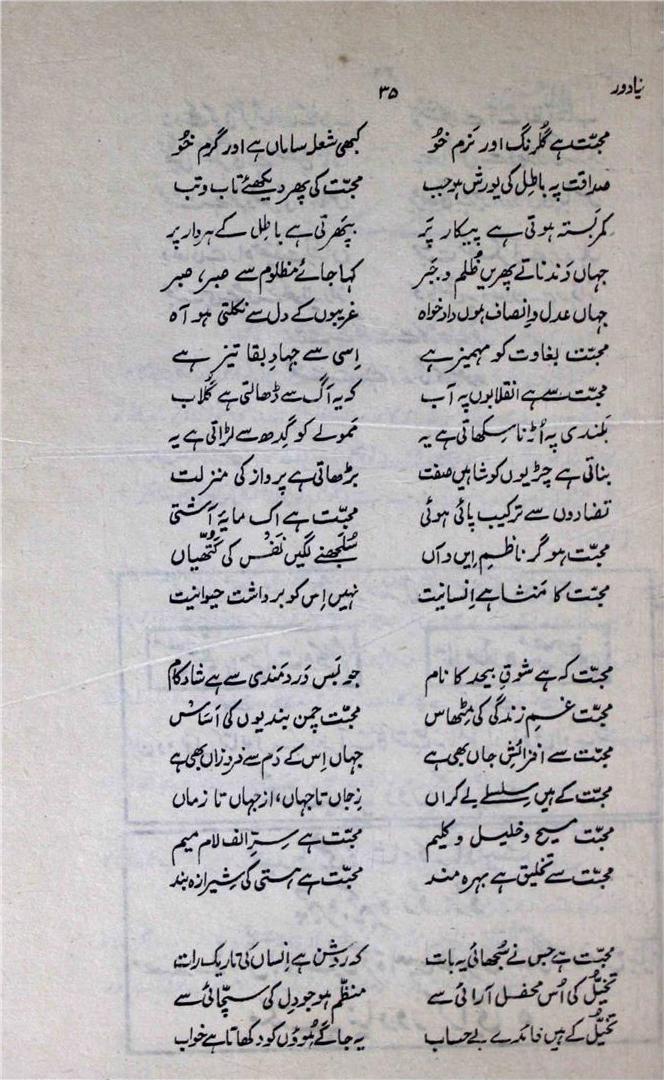 نیا دور
۳۵
محبّت ہے گُلرنگ اور نَرم خُو کبھی شعلہ ساماں ہے اور گرم خُو
صداقت پہ باطِل کی یورش ہو جب محبّت کی پھر دیکھئے تاب و تب
کمر بَستہ ہوتی ہے پیکار پَر بپھرتی ہے باطِل کے ہر وار پر
جہاں دَندناتے پھریں ظُلم و جَبر کہا جائے مظلوم سے صبر، صبر
جہاں عدل و اِنصاف ہوں داد خواہ غریبوں کے دل سے نکلتی ہو آہ
محبّت بغاوت کو مہمیز ہے اِسی سے جہادِ بقا تیز ہے
محبّت سے ہے انقلابوں پہ آب کہ یہ آگ سے ڈھالتی ہے گُلاب
بُلندی پہ اُڑنا سِکھاتی ہے یہ ممولے کو گِدھ سے لڑاتی ہے یہ
بناتی ہے چڑیوں کو شاہیں صفت بڑھاتی ہے پرواز کی منزلت
تضادوں سے ترکیب پائی ہوئی محبّت ہے اک مایۂ آشتی
محبّت ہو گر ناظمِ اِیں و آں سُلجھنے لگیں نَفس کی گُتھّیاں
محبّت کا مَنشا ہے اِنسانیت نہیں اِس کو برداشت حیوانیت
محبّت کہ ہے شوقِ بیحد کا نام جو بَس دَردمَندی سے ہے شاد کام
محبّت غمِ زندگی کی مِٹھاس محبّت چمن بندیوں کی اَساس
محبّت سے افزائشِ جاں بھی ہے جہاں اِس کے دَم سے فروزاں بھی ہے
محبّت کے ہیں سِلسلے بے کراں زِجاں تا جہاں، از جہاں تا زماں
محبّت مسیح و خلیل و کلیم محبّت ہے سِرِّ الف لام میم
محبّت سے تخلیق ہے بہرہ مند محبّت ہے ہستی کی شِیرازہ بند
محبّت ہے جس نے سُجھائی یہ بات کہ روشن ہے اِنساں کی تاریک رات
تخیّل کی اُس محفل آرائی سے منظّم ہو جو دِل کی سچّائی سے
تخیّل کے ہیں فائدے بے حساب یہ جاگے ہُوؤں کو دکھاتا ہے خواب